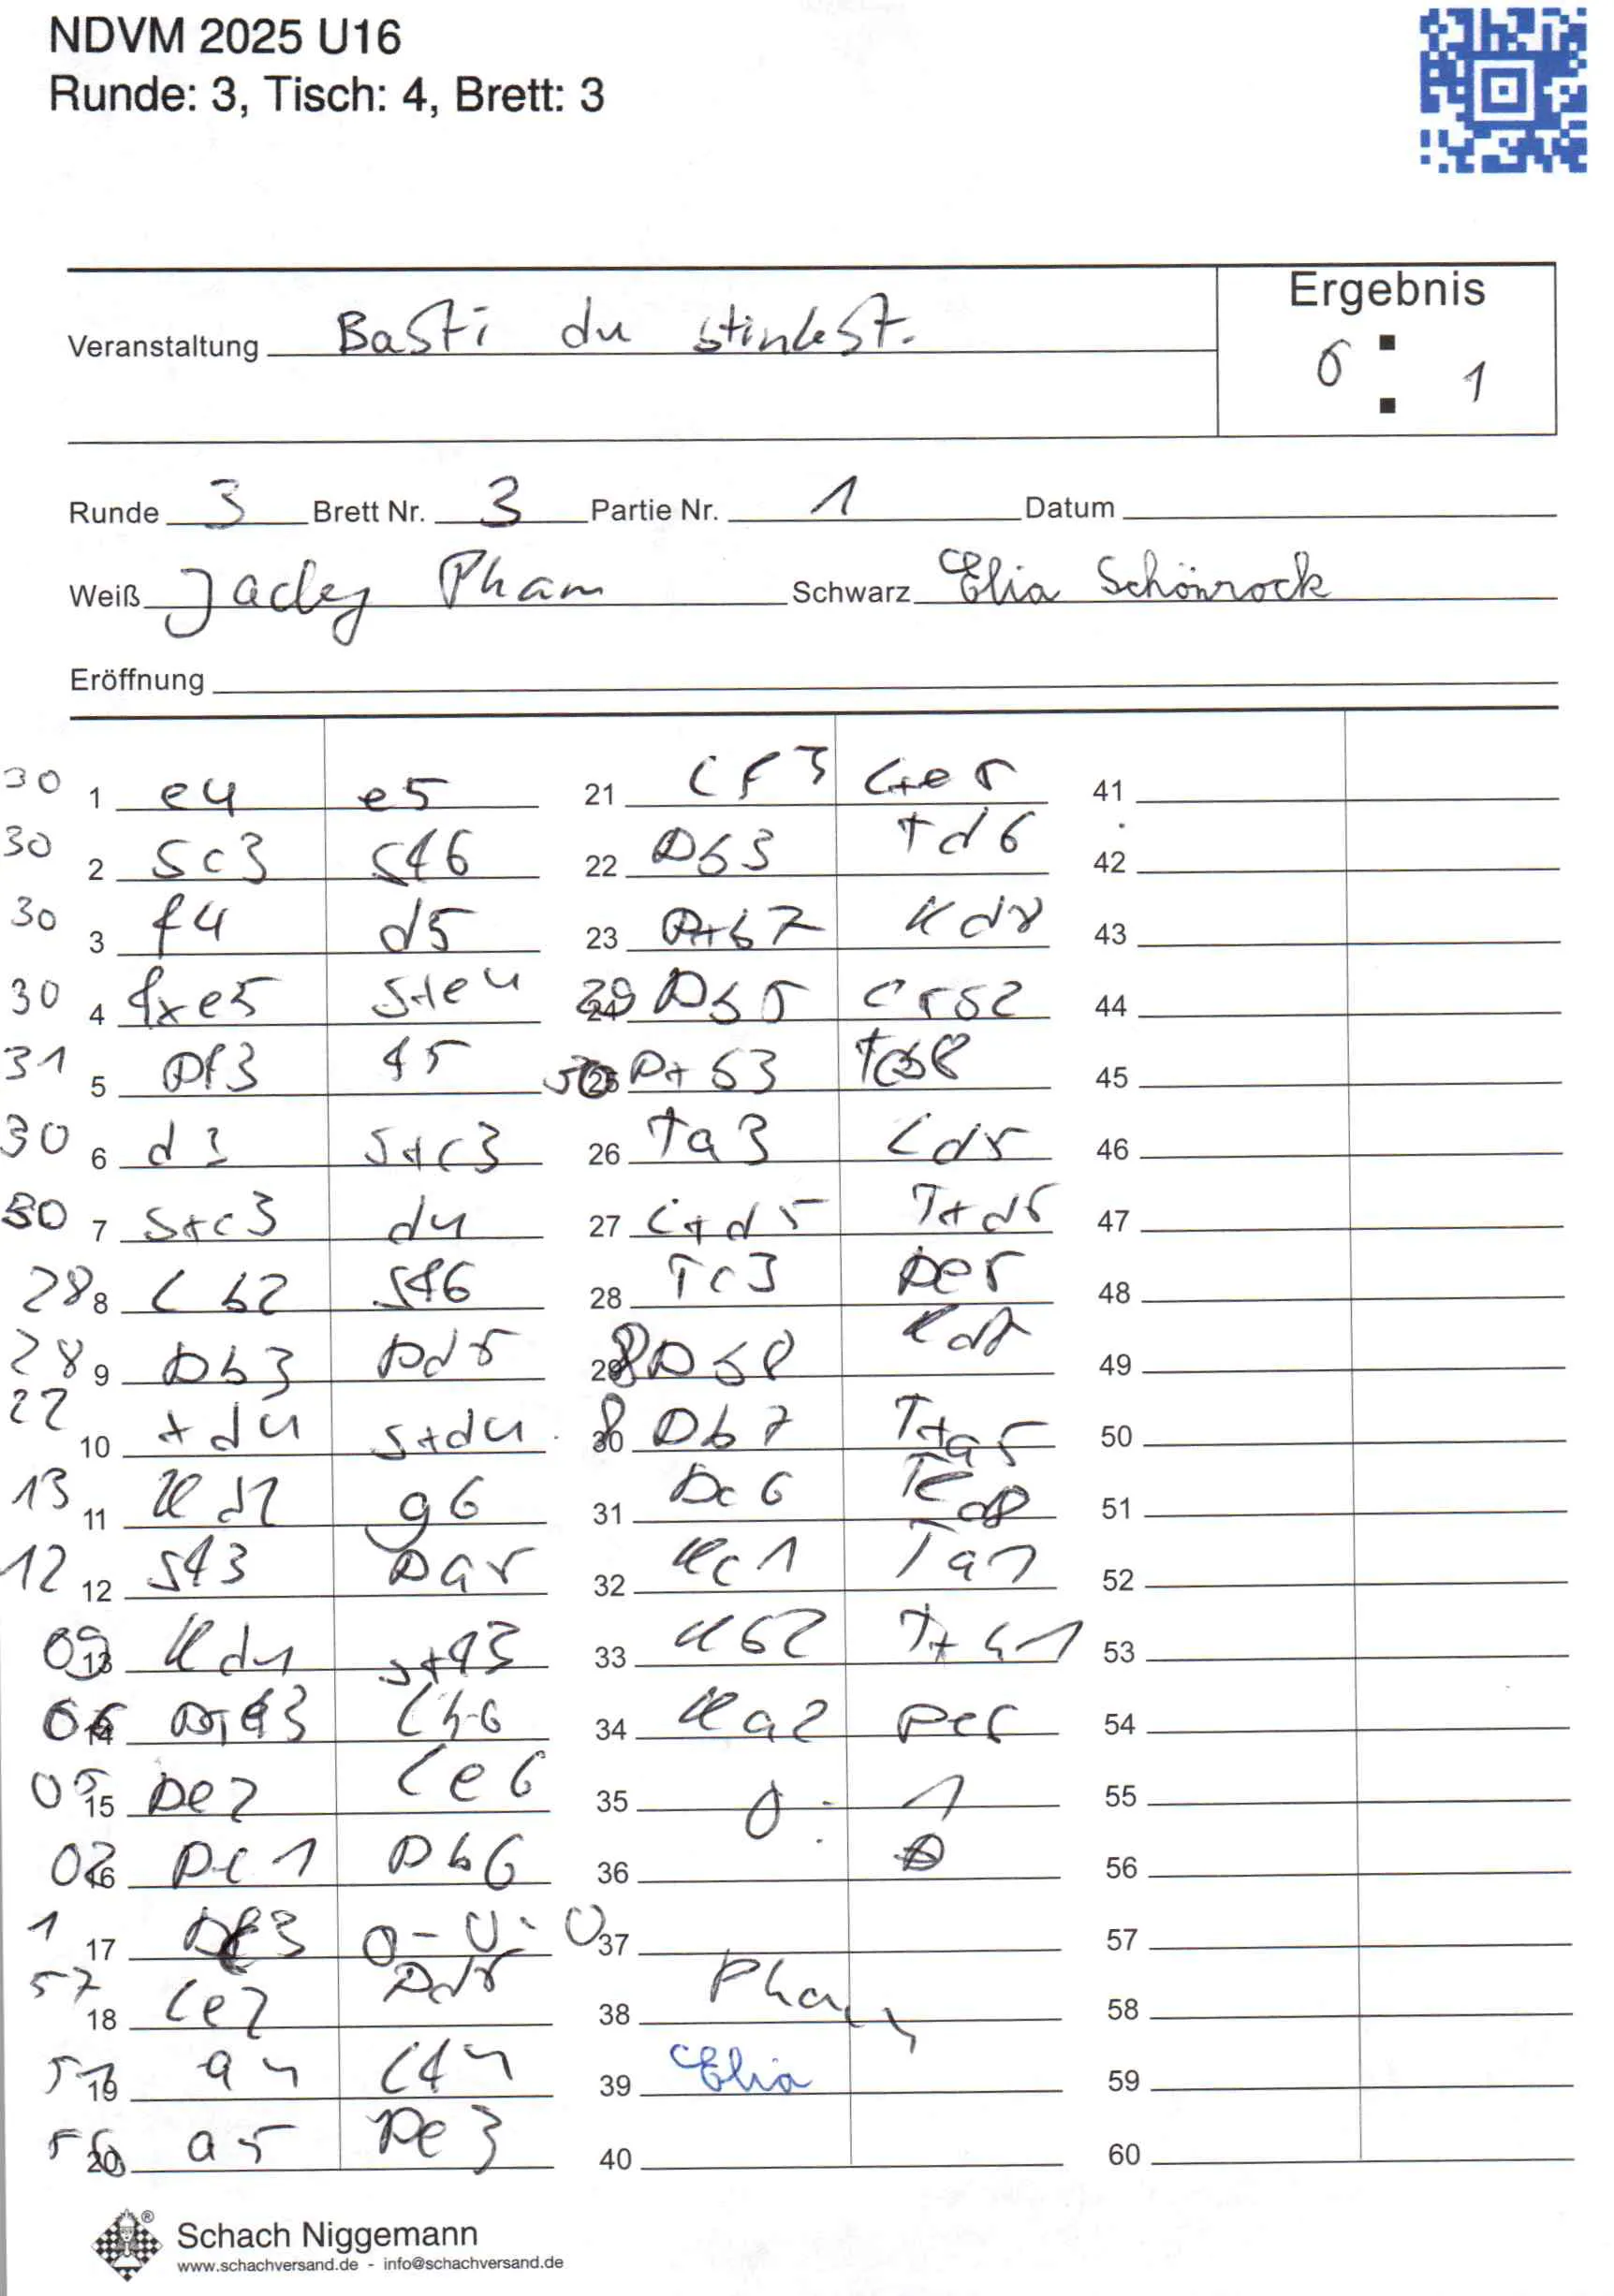 NDVM 2025 U16
Runde: 3, Tisch: 4, Brett: 3
Ergebnis
Veranstaltung Basti du stinkst.
0 : 1
Runde 3 Brett Nr. 3 Partie Nr. 1 Datum
Weiß Jacky Pham Schwarz Elia Schönrock
Eröffnung
30 1 e4 e5
30 2 Sc3 Sf6
30 3 f4 d5
30 4 fxe5 S+e4
31 5 Df3 f5
30 6 d3 S+c3
30 7 S+c3 d4
28 8 Lb2 Sf6
28 9 Db3 Dd5
22 10 +d4 S+d4
13 11 Kd2 g6
12 12 Sf3 Da5
09 13 Kd1 S+f3
06 14 D+f3 Lh6
05 15 De2 Le6
02 16 De1 Db6
1 17 0-0-0
57 18 Le2 Dd8
19 a4 Lf4
20 a5 De3
21 Lf3 L+e5
22 Db3 Td6
23 D+b7 Kd8
24 Db5
25 D+b3
26 Ta3 Ld5
27 L+d5 T+d5
28 Tc3 De5
29 Db8 Kd7
30 Db7 T+a5
31 Dc6
32 Kc1 Ta1
33 Kb2 T+h1
34 Ka2 De5
35 0 : 1
36
37
38 Pham
39 Elia
40
41
42
43
44
45
46
47
48
49
50
51
52
53
54
55
56
57
58
59
60
Schach Niggemann
www.schachversand.de - info@schachversand.de